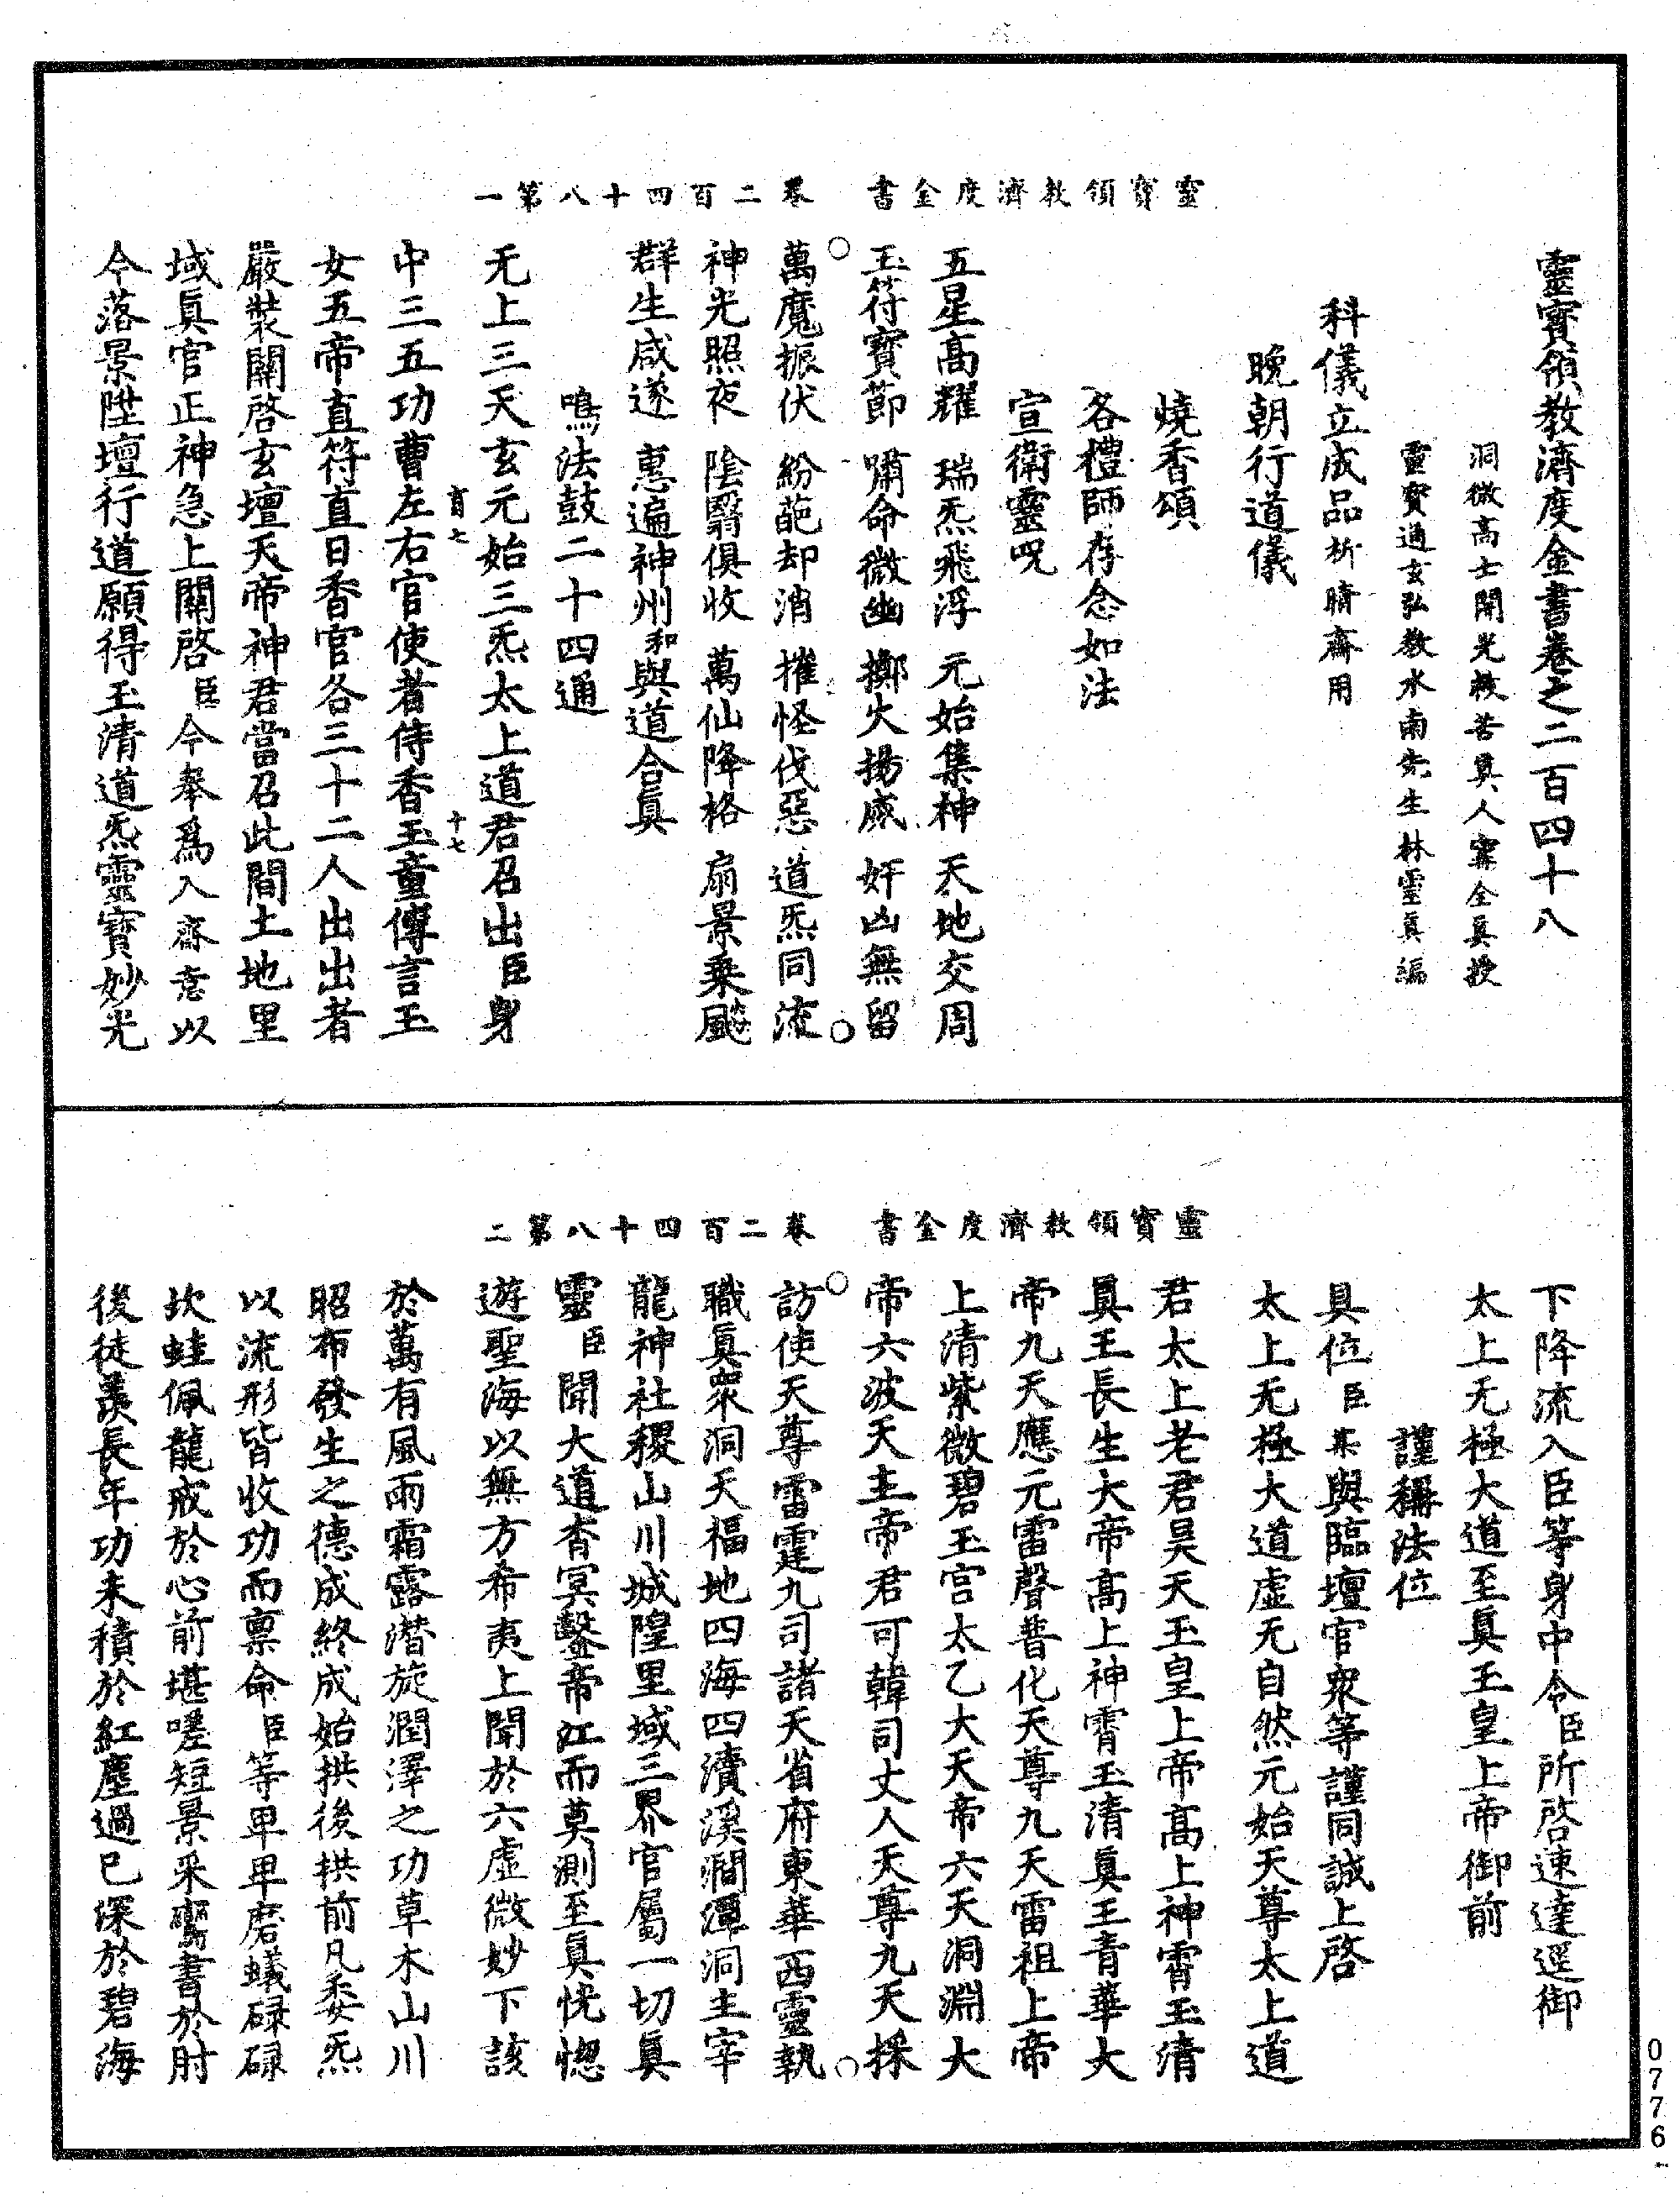 靈寶領教濟度金書　卷二百四十八第一
靈寶領教濟度金書卷之二百四十八
洞微高士開光救苦真人甯全真授
靈寶通玄弘教水南先生林靈真編
科儀立成品祈晴齋用
晚朝行道儀
燒香頌
各禮師存念如法
宣衛靈呪
五星高耀　瑞炁飛浮　元始集神　天地交周
玉符寶節　嘯命微幽　擲火揚威　奸凶無留
萬魔振伏　紛葩却消　摧怪伐惡　道炁同流
神光照夜　陰翳俱收　萬仙降格　扇景乗飈
群生咸遂　惠遍神州和與道合真
鳴法鼓二十四通
无上三天玄元始三炁太上道君召出臣身
中三五功曹左右官使者侍香玉童傳言玉
女五帝直符直日香官各三十二人出出者
嚴裝關啓玄壇天帝神君當召此間土地里
域真官正神急上關啓臣今奉爲入齋意以
今落景陞壇行道願得玉清道炁靈寶妙光
靈寶領教濟度金書　卷二百四十八第二
下降流入臣等身中令臣所啓速達逕御
太上无極大道至真玉皇上帝御前
謹稱法位
具位臣某與臨壇官衆等謹同誠上啓
太上无極大道虛无自然元始天尊太上道
君太上老君昊天玉皇上帝高上神霄玉清
真王長生大帝高上神霄玉清真王青華大
帝九天應元雷聲普化天尊九天雷祖上帝
上清紫微碧玉宮太乙大天帝六天洞淵大
帝六波天主帝君可韓司丈人天尊九天採
訪使天尊雷霆九司諸天省府東華西靈執
職真衆洞天福地四海四瀆溪澗潭洞主宰
龍神社稷山川城隍里域三界官屬一切真
靈臣聞大道杳冥鑿帝江而莫測至真恍惚
遊聖海以無方希夷上聞於六虛微妙下該
於萬有風雨霜露潛旋潤澤之功草木山川
昭布發生之德成終成始拱後拱前凡委炁
以流形皆收功而禀命臣等卑卑磨蟻碌碌
坎蛙佩龍戒於心前堪嗟短景采鸞書於肘
後徒羨長年功未積於紅塵過已深於碧海
0776